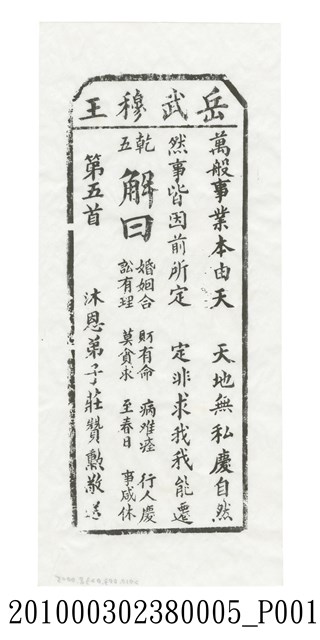 岳武穆王
萬般事業本由天　天地無私慶自然
然事皆因前所定　定非求我我能遷
乾五
解曰
婚姻合　財有命　病难痊　行人慶
訟有理　莫貪求　至春日　事咸休
第五首
沐恩弟子莊贊勳敬送
201000302380005_P001